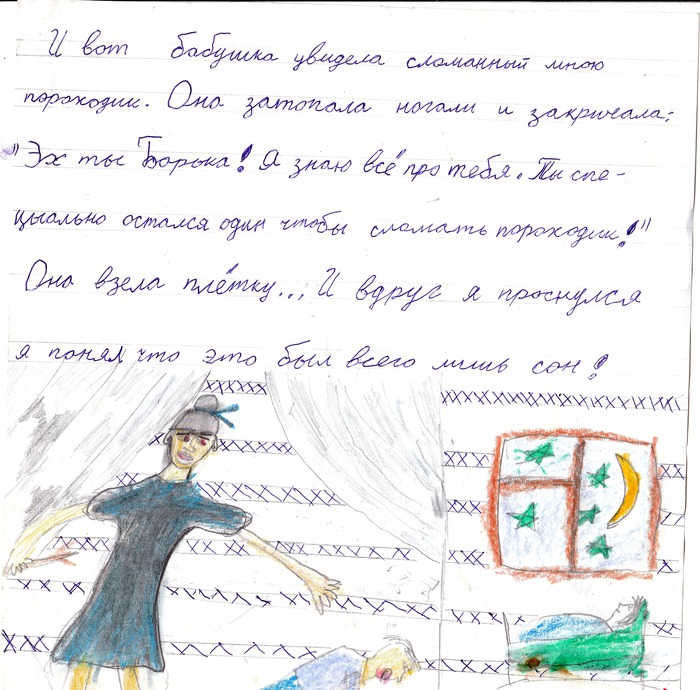 И вот бабушка увидела сломанный мною
пороходик. Она затопала ногами и закричала:
"Эх ты Борька! Я знаю всё про тебя. Ты спе-
цыально остался один чтобы сломать пороходик!"
Она взела плётку... И вдруг я проснулся
я понял что это был всего лишь сон!